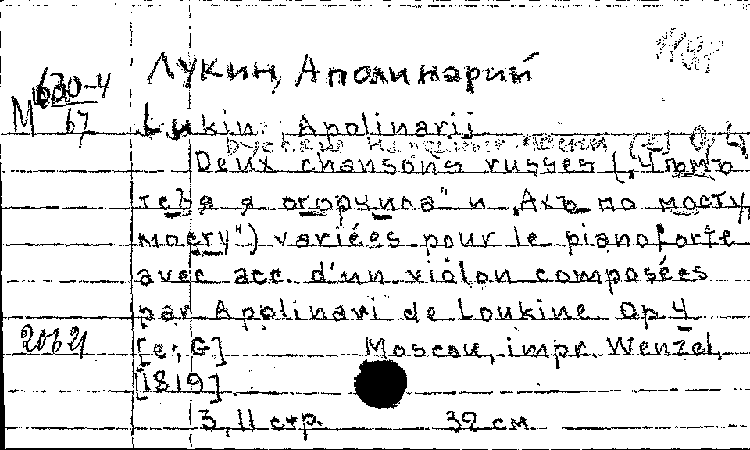 Лукин, Аполинарий
М 630-4
67
Lukin Apolinarij
Русская
Deux chansons russes („Чѣмъ
тебя я огорчила" и „Ахъ по мосту,
мосту") variées pour le pianoforte
avec acc. d'un violon composées
par Apolinari de Loukine Op. 4
[e; G] Moscou, impr. Wenzel,
[1819]
3, 11 стр. 32 см